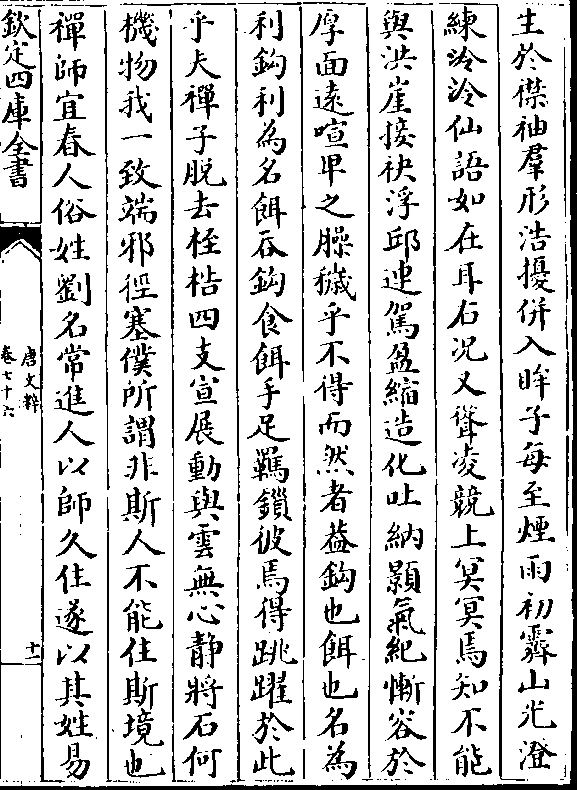 生於襟袖羣形浩擾併入眸子每至煙雨初霽山光澄
練泠泠仙語如在耳右况又聳凌競上冥冥焉知不能
與洪崖接袂浮邱連駕盈縮造化吐納顥氣紀慚容於
厚面遠喧卑之臊穢乎不得而然者葢鈎也餌也名為
利鈎利為名餌吞鈎食餌手足羈鎖彼焉得跳躍於此
乎夫禪子脱去桎梏四支宣展動與雲無心静將石何
機物我一致端邪徑塞僕所謂非斯人不能住斯境也
禪師宜春人俗姓劉名常進人以師久住遂以其姓易
欽定四庫全書
唐文粹
卷七十六
十一